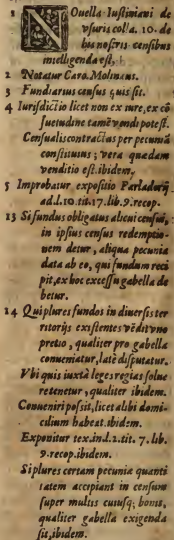 1 Nouella Iustiniani de
vsuris colla. 10. de
his nostris censibus
intelligenda est,
2 Notatur Caro. Molinæus.
3 Fundiarius census quis sit.
4 Iurisdictio licet non ex iure, ex cō
suetudine tamē vendi potest.
Censualis contractus per pecuniā
constituius; vera quædam
venditio est. ibidem,
5 Improbatur expositio Parladorij
ad.l.10.tit.17.lib.9.recop.
13 Si fundus obligatus alicui censui,
in ipsius census redemptio-
uem detur, aliqua pecunia
data ab eo, qui fundum reci
pit, ex hoc excessu gabella de
betur.
14 Qui plures fundos in diuersis ter
ritorijs existentes vēdit vno
pretio, qualiter pro gabella
conueniatur, latè disputatur.
Vbi quis iuxta leges regias solue
re tenetur, qualiter ibidem.
Conueniri possit, licet alibi domi-
cilium habeat. ibidem.
Exponitur tex. in d.l.2.tit. 7. lib.
9.recop. ibidem.
Si plures certam pecuniæ quanti
tatem accipiant in censum
super multis cuiusq; bonis,
qualiter gabella exigenda
sit, ibidem.